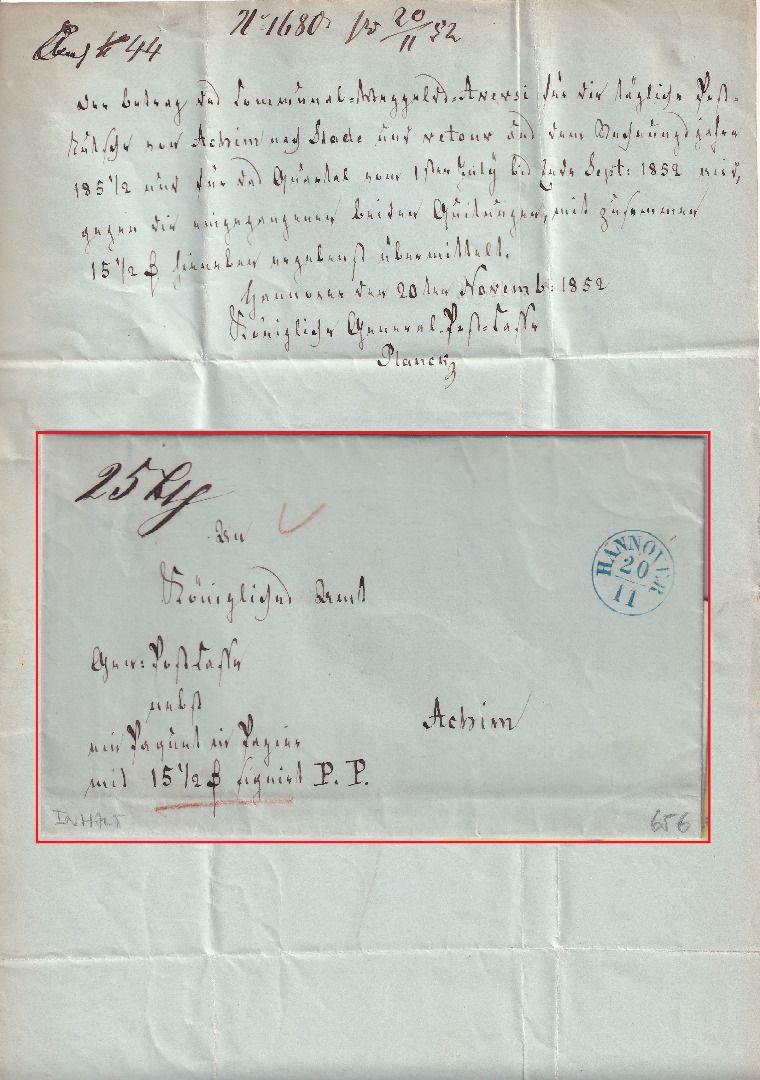 № 44
№ 1680. pr 20/11 52
Der Betrag des Communal-Weggelds-Aversi für die tägliche Post-
kutsche von Achim nach Stade und retour aus dem Rechnungsjahre
1851/2 und für das Quartal vom 1sten July bis Ende Sept: 1852 wird,
gegen die eingegangenen beiden Quitungen, mit zusammen
15 1/2 ₰ hieneben ergebenst übermittelt.
Hannover den 20ten Novemb: 1852
Königliche General-Post-Casse
Planck
25
An
Königliches Amt
Gen: Post Casse
nebst
ein Paquet in Papier
mit 15 1/2 ₰ signirt P. P.
Achim
HANNOVER
20
11
INHALT
656